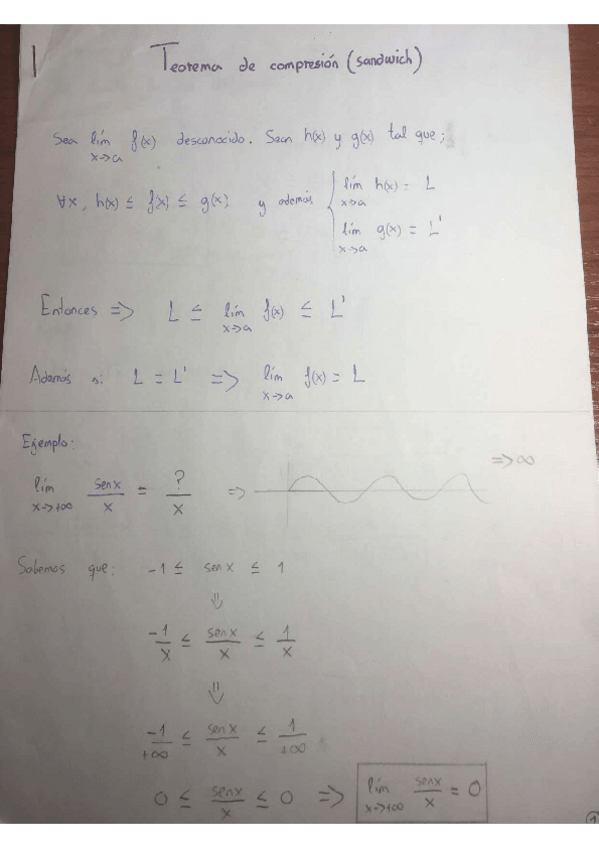 Teorema de compresión (sandwich)
Sea lím x->a f(x) desconocido. Sean h(x) y g(x) tal que;
∀x, h(x) ≤ f(x) ≤ g(x); y además { lím x->a h(x) = L
lím x->a g(x) = L'
Entonces => L ≤ lím x->a f(x) ≤ L'
Además si L = L' => lím x->a f(x) = L
Ejemplo:
=> ∞
lím x->+∞ senx/x = ?/x =>
Sabemos que: -1 ≤ senx ≤ 1
⇓
-1/x ≤ senx/x ≤ 1/x
⇓
-1/+∞ ≤ senx/x ≤ 1/+∞
0 ≤ senx/x ≤ 0 => lím x->+∞ senx/x = 0
1